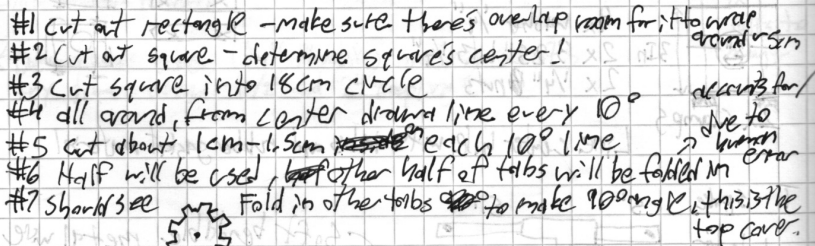 #1 Cut out rectangle - make sure there's overlap room for it to wrap around ~5cm
#2 Cut out square - determine square's center!
#3 Cut square into 18cm circle
#4 all around, from center draw a line every 10°
#5 Cut about 1cm-1.5cm on each 10° line → accounts for/due to human error
#6 Half will be used, other half of tabs will be folded in
#7 Should see Fold in other tabs to make 90° angle, this is the top cover.